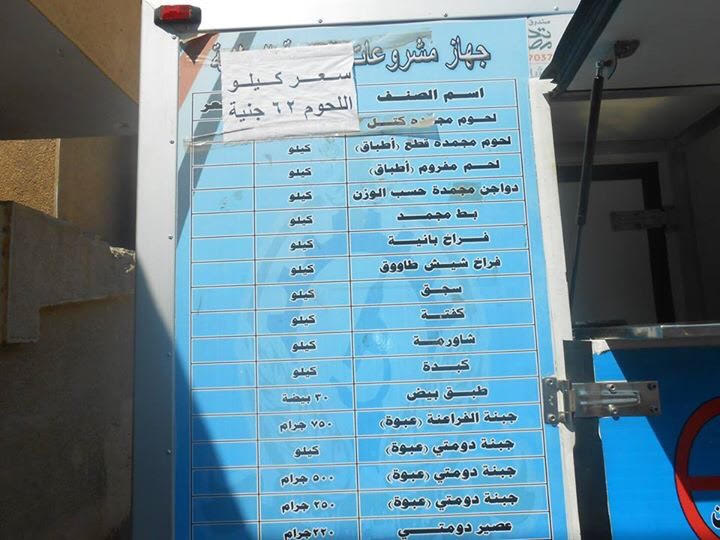 صندوق
تحيا مصر
7037
جهاز مشروعات
سعر كيلو
اللحوم ٦٢ جنية
اسم الصنف
لحوم مجمدة كتل
لحوم مجمدة قطع (أطباق) كيلو
لحم مفروم (أطباق) كيلو
دواجن مجمدة حسب الوزن كيلو
بط مجمد كيلو
فراخ بانية كيلو
فراخ شيش طاووق كيلو
سجق كيلو
كفتة كيلو
شاورمة كيلو
كبدة كيلو
طبق بيض ٣٠ بيضة
جبنة الفراعنة (عبوة) ٧٥٠ جرام
جبنة دومتي (عبوة) كيلو
جبنة دومتي (عبوة) ٥٠٠ جرام
جبنة دومتي (عبوة) ٢٥٠ جرام
عصير دومتي ٢٢٠ جرام